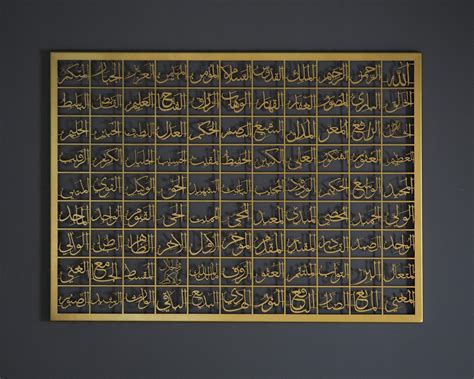 الله الرحمن الرحيم الملك القدوس السلام المؤمن المهيمن العزيز الجبار المتكبر
الخالق البارئ المصور الغفار القهار الوهاب الرزاق الفتاح العليم القابض الباسط
الخافض الرافع المعز المذل السميع البصير الحكم العدل اللطيف الخبير الحليم
العظيم الغفور الشكور العلي الكبير الحفيظ المقيت الحسيب الجليل الكريم الرقيب
المجيب الواسع الحكيم الودود المجيد الباعث الشهيد الحق الوكيل القوي المتين
الولي الحميد المحصي المبدئ المعيد المحيي المميت الحي القيوم الواجد الماجد
الواحد الصمد القادر المقتدر المقدم المؤخر الأول الآخر الظاهر الباطن الوالي
المتعال البر التواب المنتقم العفو الرءوف مالك الملك ذو الجلال والإكرام المقسط الجامع الغني
المغني المانع الضار النافع النور الهادي البديع الباقي الوارث الرشيد الصبور